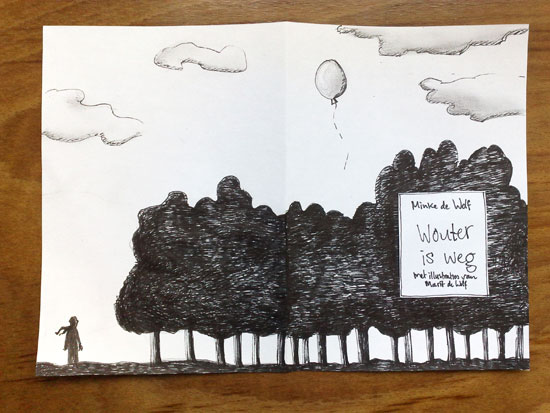 Minke de Wolf
Wouter
is weg
met illustraties van
Marit de Wolf